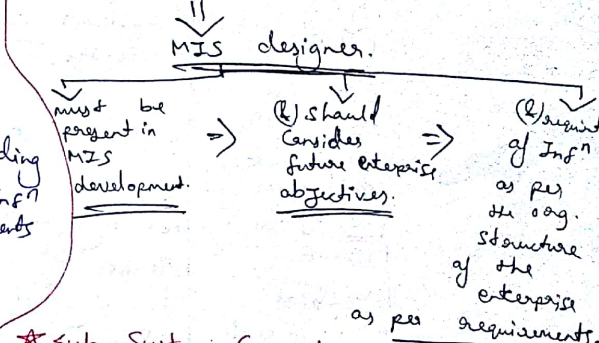 MIS designer.
must be
present in
MIS
development.
=>
(&) Should
Consider
future enterprise
objectives.
=>
(&) requirt
of Infⁿ
as per
the org.
structure
of the
enterprise
as per requirements.
ding
nfⁿ
ents